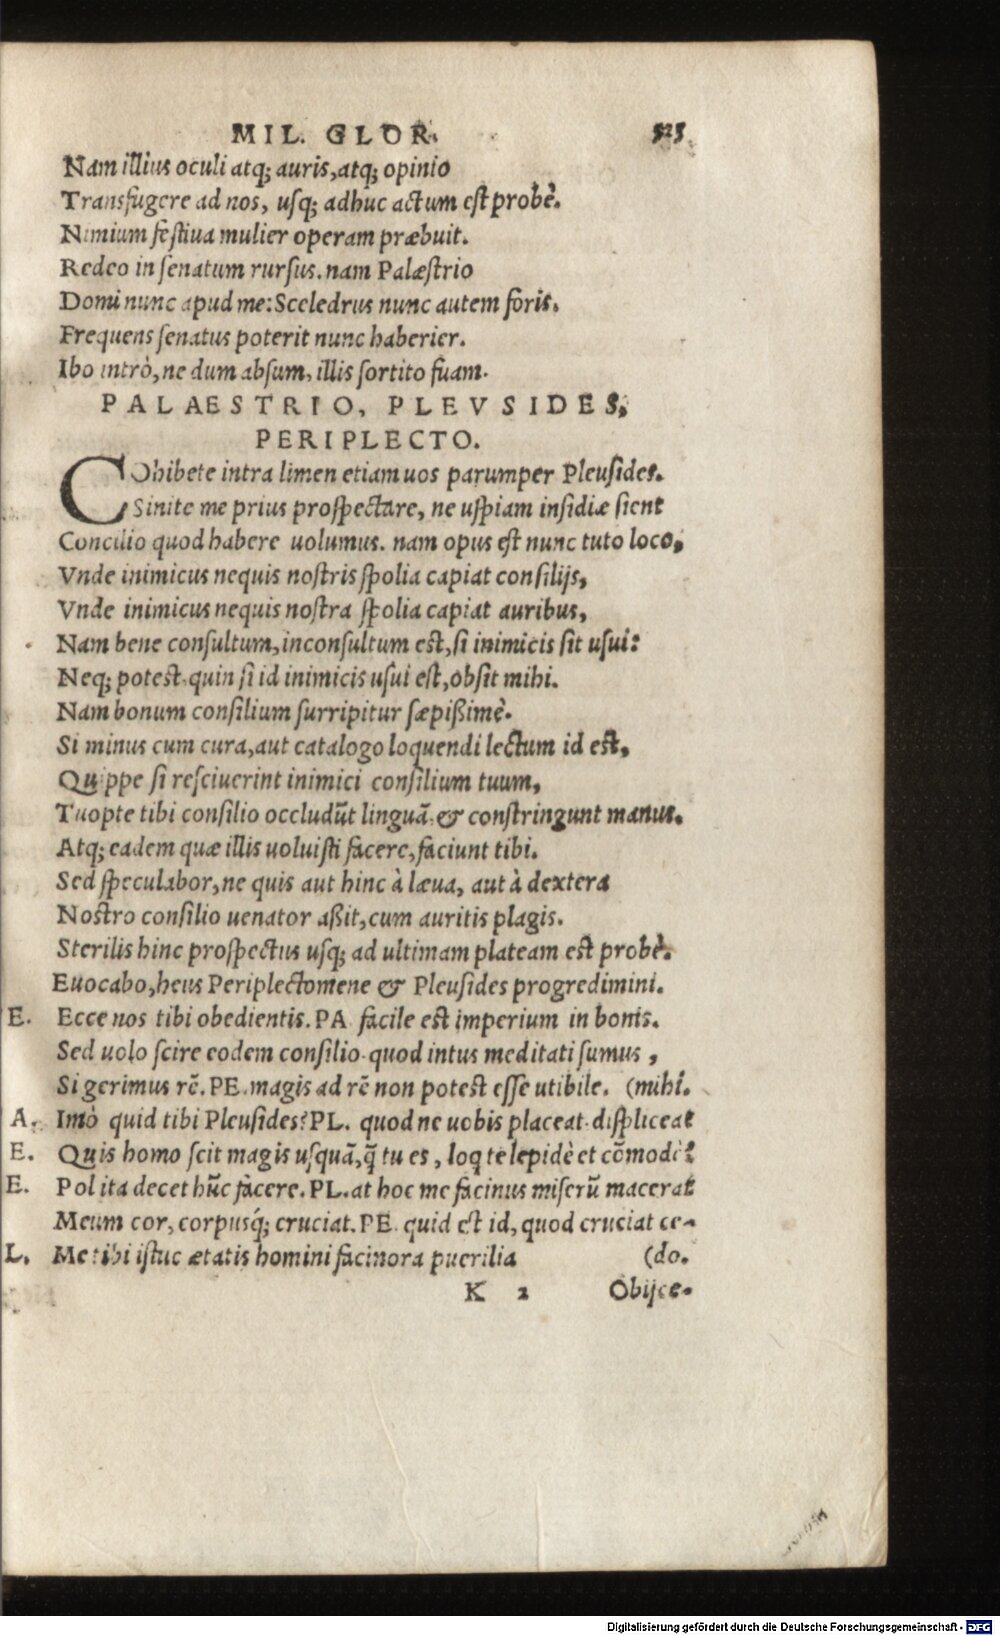 MIL. GLOR. 525
Nam illius oculi atq; auris, atq; opinio
Transfugere ad nos, usq; adhuc actum est probè.
Nimium festiua mulier operam præbuit.
Redeo in senatum rursus. nam Palæstrio
Domi nunc apud me: Sceledrus nunc autem foris.
Frequens senatus poterit nunc haberier.
Ibo intrò, ne dum absum, illis sortito fuam.
PALAESTRIO, PLEVSIDES,
PERIPLECTO.
COhibete intra limen etiam uos parumper Pleusides.
Sinite me prius prospectare, ne uspiam insidiæ sient
Concilio quod habere uolumus. nam opus est nunc tuto loco,
Vnde inimicus nequis nostris spolia capiat consilijs,
Vnde inimicus nequis nostra spolia capiat auribus,
Nam bene consultum, inconsultum est, si inimicis sit usui:
Neq; potest quin si id inimicis usui est, obsit mihi.
Nam bonum consilium surripitur sæpißimè.
Si minus cum cura, aut catalogo loquendi lectum id est,
Quippe si resciuerint inimici consilium tuum,
Tuopte tibi consilio occludũt linguã, & constringunt manus.
Atq; eadem quæ illis uoluisti facere, faciunt tibi.
Sed speculabor, ne quis aut hinc à læua, aut à dextera
Nostro consilio uenator aßit, cum auritis plagis.
Sterilis hinc prospectus usq; ad ultimam plateam est probè.
Euocabo, heus Periplectomene & Pleusides progredimini.
E. Ecce nos tibi obedientis. PA facile est imperium in bonis.
Sed uolo scire eodem consilio quod intus meditati sumus,
Si gerimus rẽ. PE. magis ad rẽ non potest esse utibile. (mihi.
A. Imò quid tibi Pleusides? PL. quod ne uobis placeat displiceat
E. Quis homo scit magis usquã, q̃ tu es, loq te lepidè et cõmodè?
E. Pol ita decet hũc facere. PL. at hoc me facinus miserũ macerat
Meum cor, corpusq́; cruciat. PE. quid est id, quod cruciat ce-
L. Me tibi istuc ætatis homini facinora puerilia (do.
K 2 Obijce-
Digitalisierung gefördert durch die Deutsche Forschungsgemeinschaft - DFG